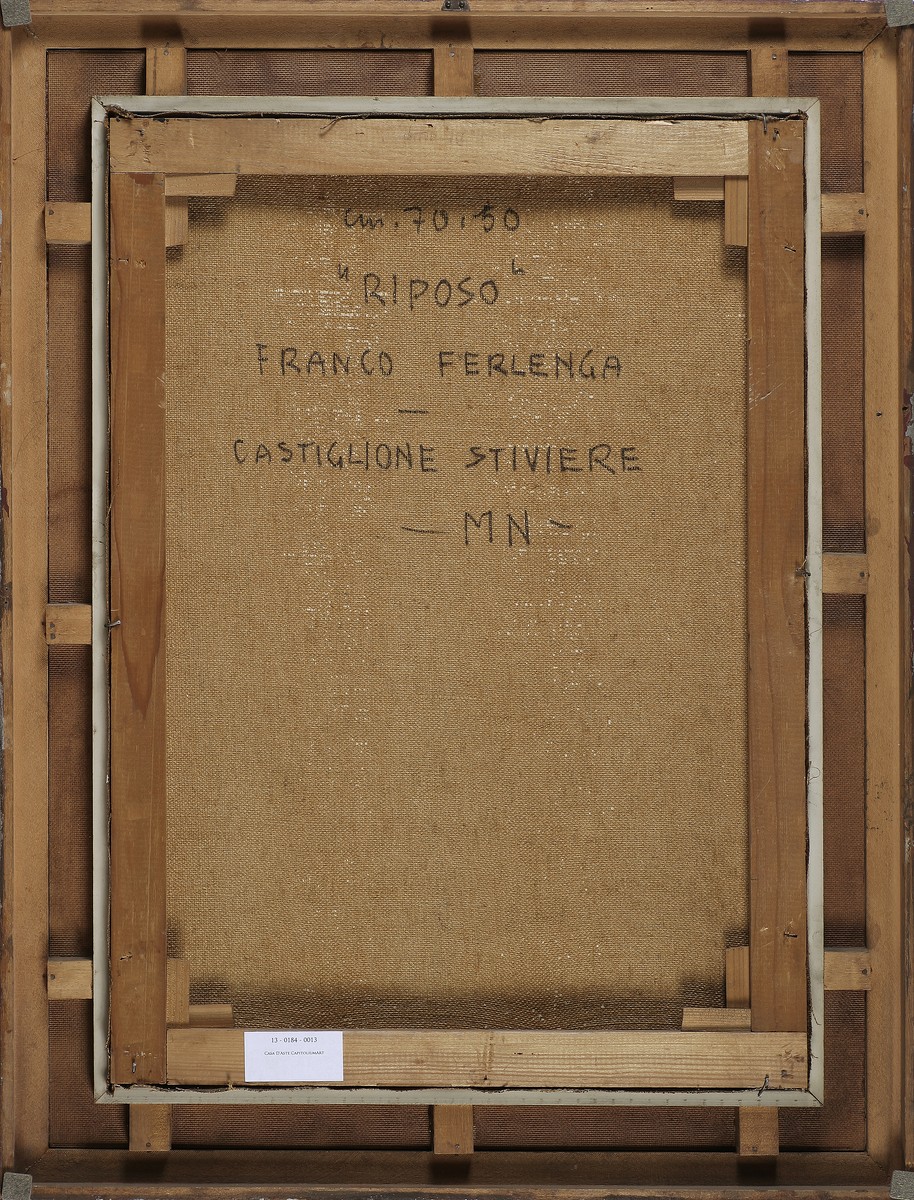 cm. 70.50
"RIPOSO"
FRANCO FERLENGA
—
CASTIGLIONE STIVIERE
— MN —
13 - 0184 - 0013
CASA D'ASTE CAPITOLIUMART